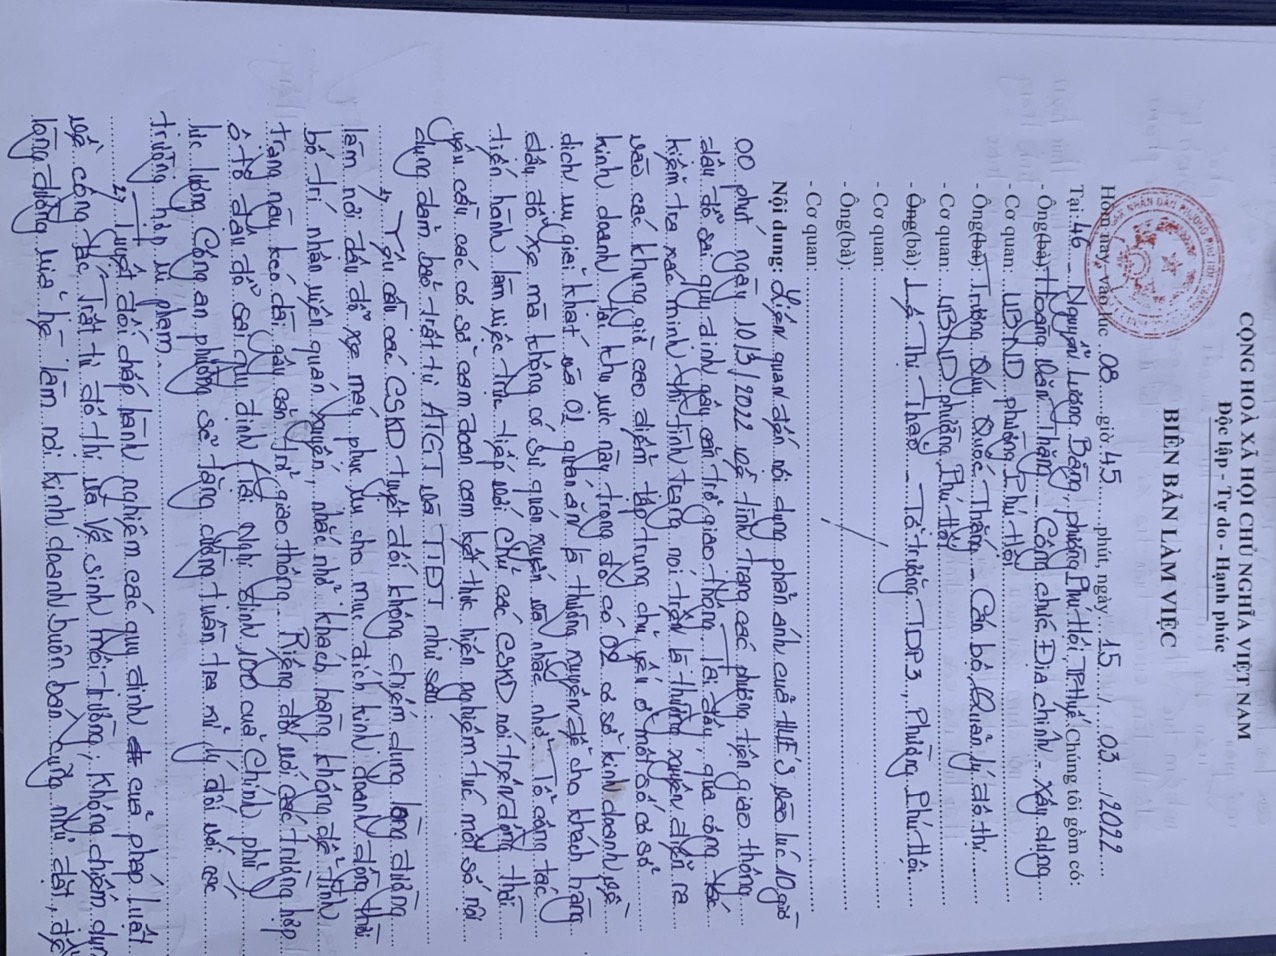 CỘNG HOÀ XÃ HỘI CHỦ NGHĨA VIỆT NAM
Độc lập - Tự do - Hạnh phúc
BIÊN BẢN LÀM VIỆC
Hôm nay, vào lúc 08 giờ 45 phút, ngày 15 / 03 /2022
Tại: 46 - Nguyễn Lương Bằng, phường Phú Hội, TP Huế Chúng tôi gồm có:
- Ông(bà) Hoàng Văn Thắng - Công chức Địa chính - Xây dựng
- Cơ quan: UBND phường Phú Hội
- Ông(bà): Trương Quý Quốc Thắng - Cán bộ Quản lý đô thị
- Cơ quan: UBND phường Phú Hội
- Ông(bà): Lê Thị Thảo - Tổ trưởng TDP3, Phường Phú Hội
- Cơ quan:
- Ông(bà):
- Cơ quan:
Nội dung: Liên quan đến nội dung phản ánh của HUE S vào lúc 10 giờ
00 phút ngày 10/3/2022 về tình trạng các phương tiện giao thông
đậu đỗ sai quy định gây cản trở giao thông. Tại đây, qua công tác
kiểm tra xác minh thì tình trạng nói trên là thường xuyên diễn ra
vào các khung giờ cao điểm tập trung chủ yếu ở một số cơ sở
kinh doanh tại khu vực này, trong đó có 02 cơ sở kinh doanh về
dịch vụ giải khát và 01 quán ăn là thường xuyên để cho khách hàng
đậu đỗ xe mà không có sự quán xuyến và nhắc nhở. Tổ công tác
tiến hành làm việc trực tiếp với chủ các CSKD nói trên đồng thời
yêu cầu các cơ sở cam đoan cam kết thực hiện nghiêm túc một số nội
dung đảm bảo trật tự ATGT và TTĐT như sau:
1, Yêu cầu các CSKD tuyệt đối không chiếm dụng lòng đường
làm nơi đậu đỗ xe máy phục vụ cho mục đích kinh doanh đồng thời
bố trí nhân viên quán xuyến, nhắc nhở khách hàng không để tình
trạng này kéo dài gây cản trở giao thông. Riêng đối với các trường hợp
ô tô đậu đỗ sai quy định tại Nghị định 100 của Chính phủ
lực lượng Công an phường sẽ tăng cường tuần tra xử lý đối với các
trường hợp vi phạm.
2, Tuyệt đối chấp hành nghiêm các quy định của pháp luật
về công tác Trật tự đô thị và Vệ sinh môi trường; Không chiếm dụng
lòng đường vỉa hè làm nơi kinh doanh buôn bán cũng như đặt, để